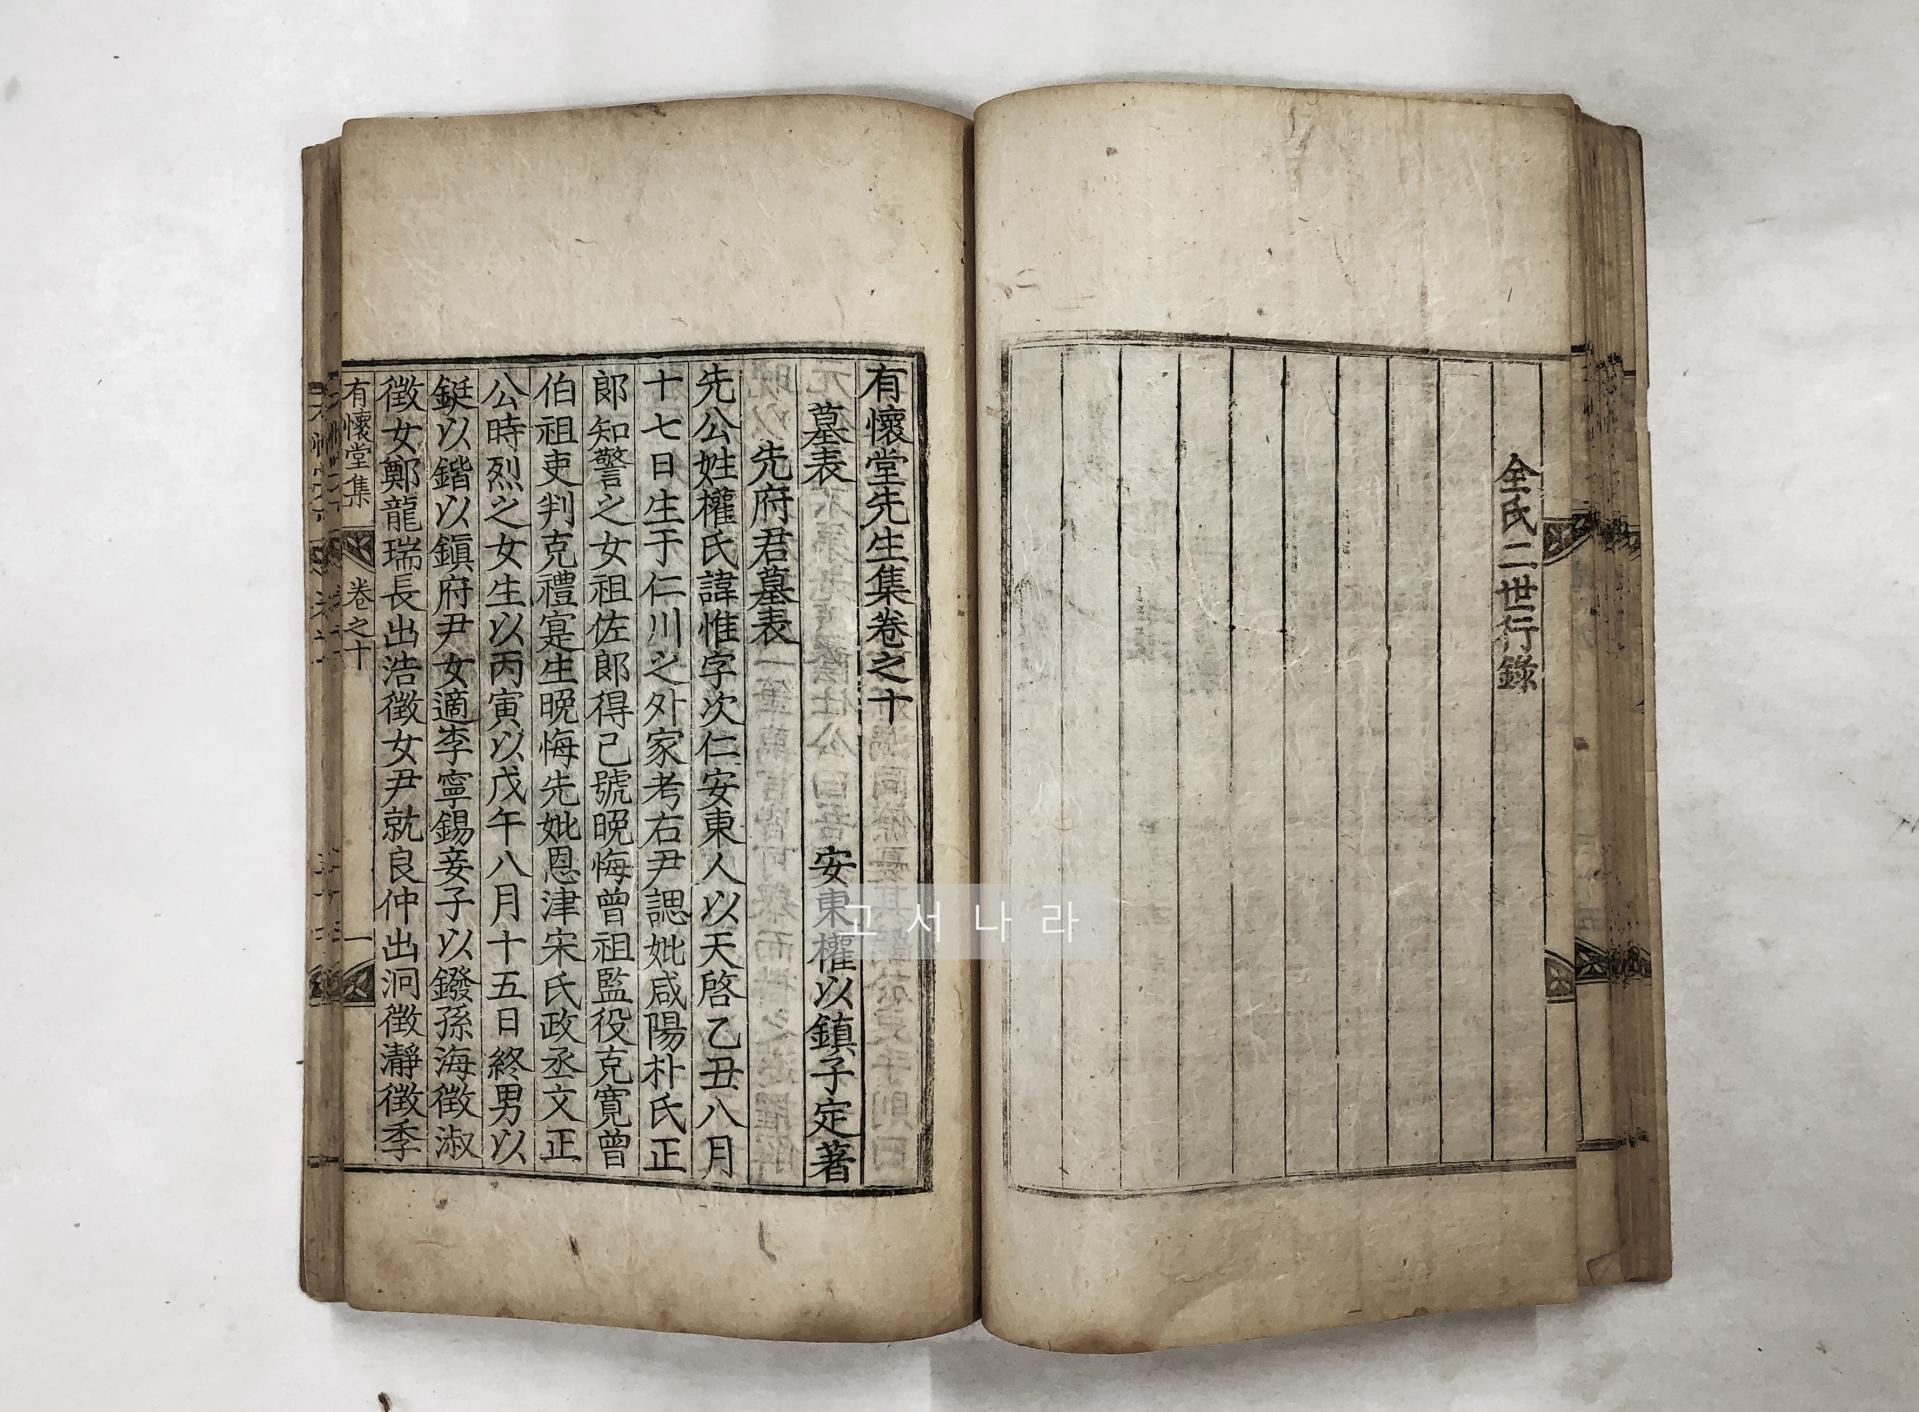 全氏二世行錄
有懷堂先生集卷之十
墓表
安東權以鎮子定著
先府君墓表
先公姓權氏諱惟字次仁安東人以天啓乙丑八月
十七日生于仁川之外家考右尹諰妣咸陽朴氏正
郞知警之女祖佐郞得己號晚悔曾祖監役克寬曾
伯祖吏判克禮寔生晚悔先妣恩津宋氏政丞文正
公時烈之女生以丙寅以戊午八月十五日終男以
鋌以鍇以鎭府尹女適李寧錫妾子以鏺孫海徵淑
徵女鄭龍瑞長出浩徵女尹就良仲出泂徵瀞徵季
有懷堂集
卷之十
一
고서나라